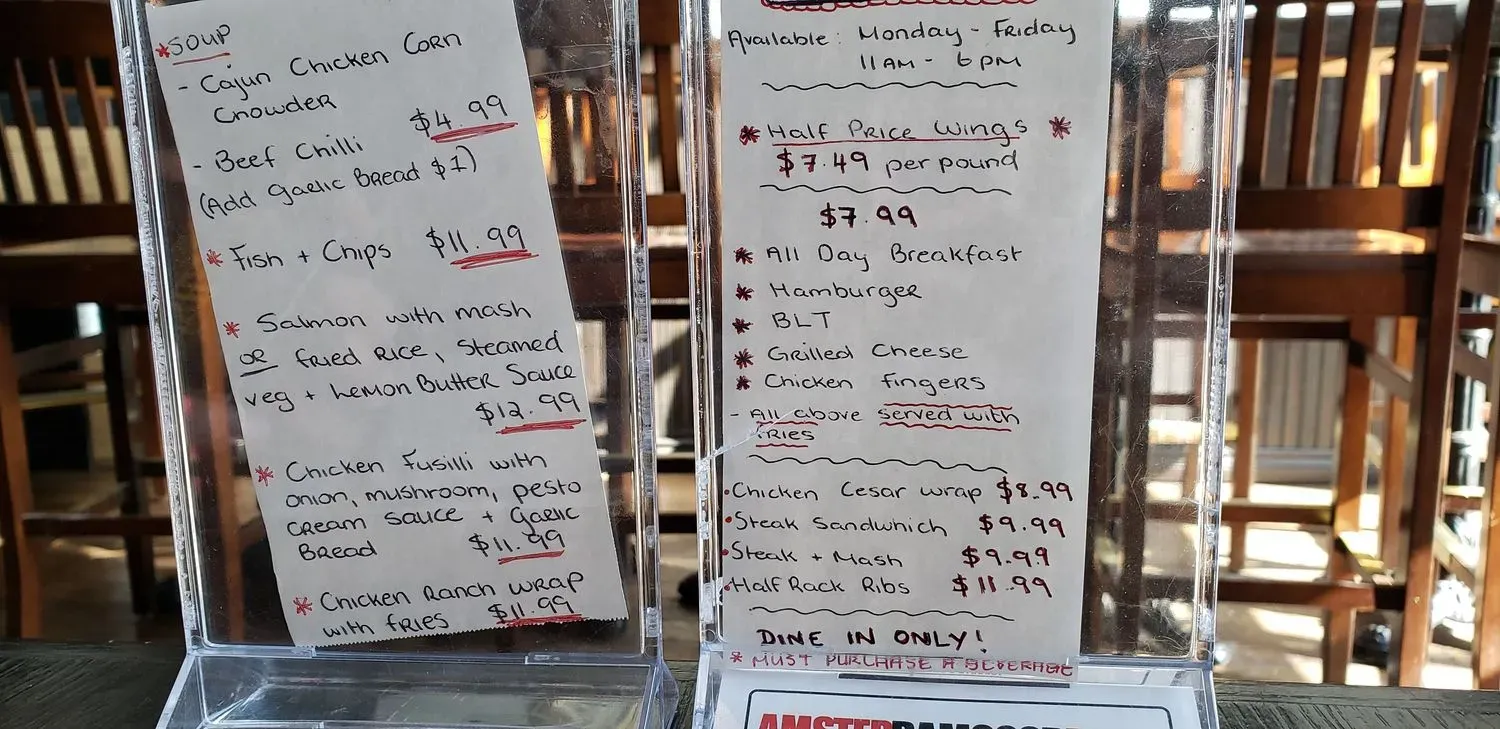 *SOUP
- Cajun Chicken Corn
Chowder
$4.99
- Beef Chilli
(Add Garlic Bread $1)
* Fish + Chips $11.99
* Salmon with mash
OR fried rice, steamed
veg + Lemon Butter Sauce
$12.99
* Chicken Fusilli with
onion, mushroom, pesto
cream sauce + Garlic
Bread $11.99
* Chicken Ranch wrap
with fries $11.99
Available: Monday - Friday
11AM - 6PM
* Half Price Wings *
$7.49 per pound
$7.99
* All Day Breakfast
* Hamburger
* BLT
* Grilled Cheese
* Chicken fingers
- All above served with
fries
• Chicken Cesar wrap $8.99
• Steak Sandwhich $9.99
• Steak + Mash $9.99
• Half Rack Ribs $11.99
DINE IN ONLY!
* MUST PURCHASE A BEVERAGE